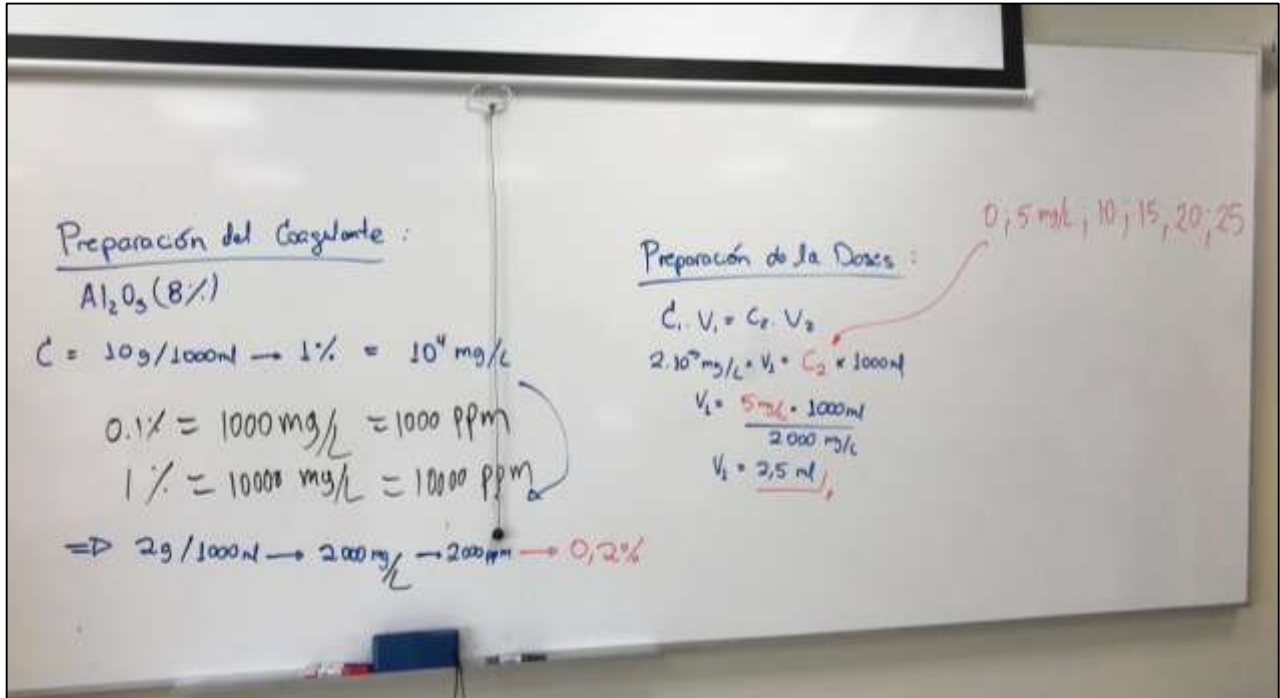 Preparación del Coagulante :
Al₂O₃ (8%)
C = 10g/1000ml → 1% = 10⁴ mg/L
0.1% = 1000 mg/L = 1000 ppm
1% = 10000 mg/L = 10000 ppm
=> 2g/1000ml → 2000 mg/L → 2000 ppm → 0,2%
0; 5 mg/L; 10; 15, 20; 25
Preparación de la Doses :
C₁. V₁ = C₂. V₂
2.10³ mg/L * V₁ = C₂ * 1000ml
V₁ = 5mg/L * 1000ml
2000 mg/L
V₁ = 2,5 ml